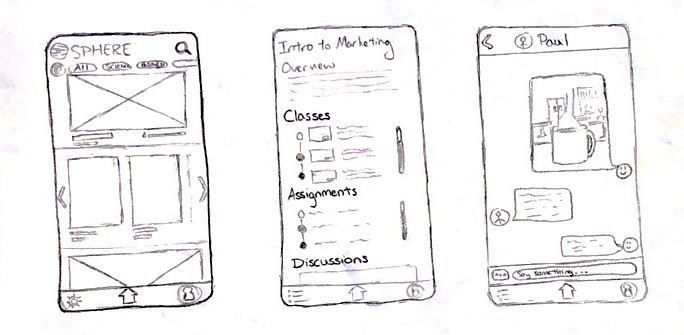 SPHERE
All
Science
Intro to Marketing
Overview
Classes
Assignments
Discussions
Paul
Say something...